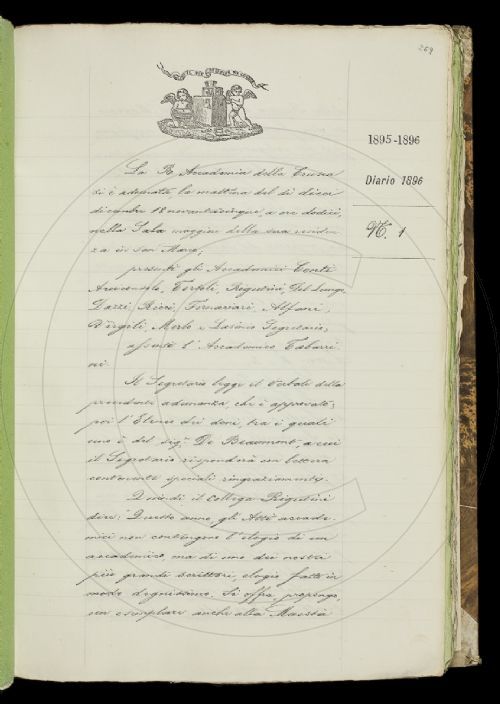 269
1895-1896
Diario 1896
N. 1
La R. Accademia della Crusca
si è adunata la mattina del dì dieci
dicembre 18novantacinque a ore dodici,
nella Sala maggiore della sua residen-
za in San Marco;
presenti gli Accademici Conti
Arciconsolo, Tortoli, Rigutini, Del Lungo,
Dazzi, Ricci, Fornaciari, Alfani,
Virgili, Merlo e Lasinio Segretario;
assente l'Accademico Tabarri-
ni.
Il Segretario legge il Verbale della
precedente adunanza, che è approvato;
poi l'Elenco dei doni, tra i quali
uno è del sig.r De Beaumont, a cui
il Segretario risponderà con lettera
contenente speciali ringraziamenti.
Quindi il collega Rigutini
dice: Questo anno, gli Atti accade-
mici non contengono l'elogio di un
accademico, ma di uno dei nostri
più grandi scrittori, elogio fatto in
modo degnissimo. Si offra, propongo,
un esemplare anche alla Maestà